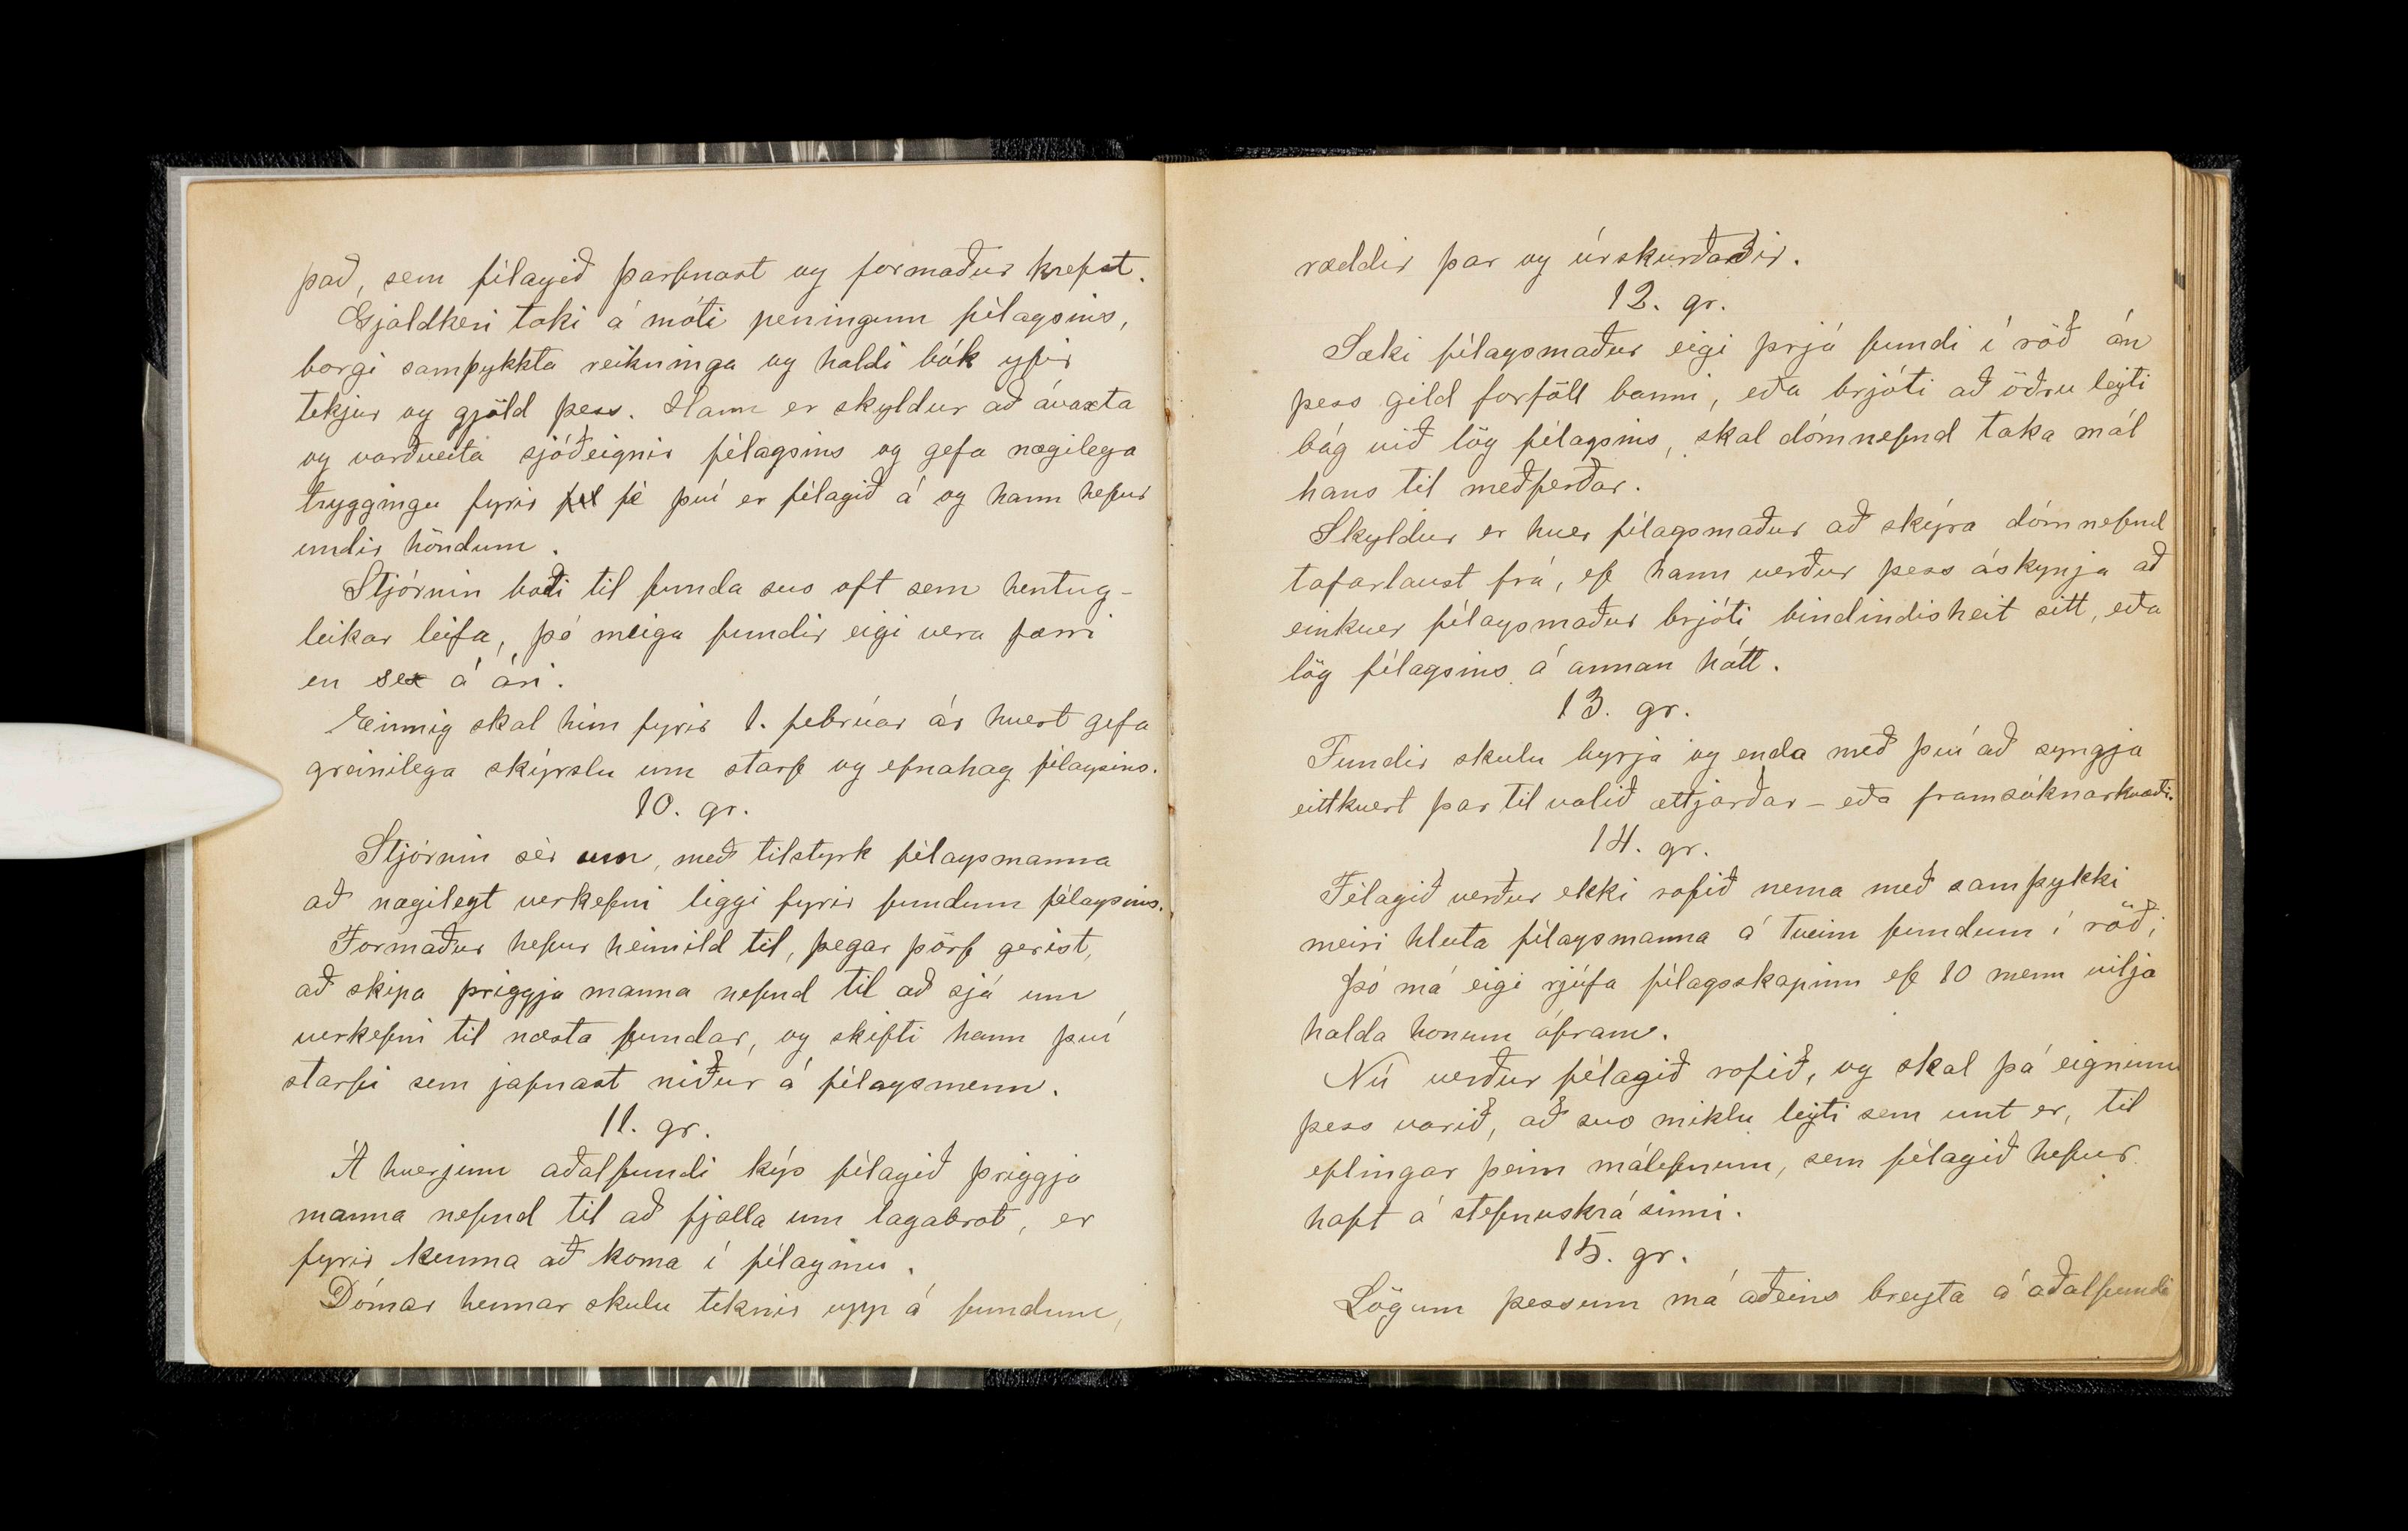 það, sem félagið þarfnast og formaður krefst.
Gjaldkeri taki á móti peningum félagsins,
borgi samþykkta reikninga og haldi bók yfir
tekjur og gjöld þess. Hann er skyldur að ávaxta
og varðveita sjóðeignir félagsins og gefa nægilega
tryggingu fyrir fél fé því er félagið á og hann hefur
undir höndum.
Stjórnin boði til funda svo oft sem hentug-
leikar leifa, þó meiga fundir eigi vera færri
en sex á ári.
Einnig skal hún fyrir 1. febrúar ár hvert gefa
greinilega skýrslu um starf og efnahag félagsins.
10. gr.
Stjórnin sér um, með tilstyrk félagsmanna
að nægilegt verkefni liggi fyrir fundum félagsins.
Formaður hefur heimild til, þegar þörf gerist,
að skipa þriggja manna nefnd til að sjá um
verkefni til næsta fundar, og skifti hann því
starfi sem jafnast niður á félagsmenn.
11. gr.
Á hverjum aðalfundi kýs félagið þriggja
manna nefnd til að fjalla um lagabrot, er
fyrir kunna að koma í félaginu.
Dómar hennar skulu teknir upp á fundum,
ræddir þar og úrskurðaðir.
12. gr.
Sæki félagsmaður eigi þrjá fundi í röð án
þess gild forföll banni, eða brjóti að öðru leyti
bág við lög félagsins, skal dómnefnd taka mál
hans til meðferðar.
Skyldur er hver félagsmaður að skýra dómnefnd
tafarlaust frá, ef hann verður þess áskynja að
einhver félagsmaður brjóti bindindisheit sitt, eða
lög félagsins á annan hátt.
13. gr.
Fundir skulu byrja og enda með því að syngja
eitthvert þar til valið ættjarðar- eða framsóknarkvæði.
14. gr.
Félagið verður ekki rofið nema með samþykki
meiri hluta félagsmanna á tveim fundum í röð;
þó má eigi rjúfa félagsskapinn ef 10 menn vilja
halda honum áfram.
Nú verður félagið rofið, og skal þá eignum
þess varið, að svo miklu leyti sem unt er, til
eflingar þeim málefnum, sem félagið hefur
haft á stefnuskrá sinni.
15. gr.
Lögum þessum má aðeins breyta á aðalfundi